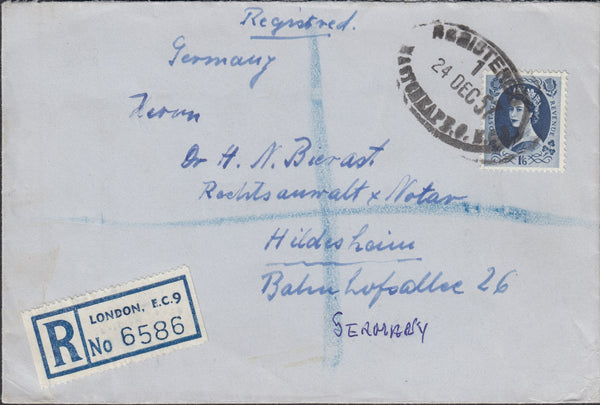 Registred.
Germany
REGISTERED
1
24 DEC 5
POSTAGE REVENUE
1/6
Herrn
Dr H. N. Bierast
Rechtsanwalt x Notar
Hildesheim
Bahnhofsallee 26
GERMANY
LONDON, E.C.9
R No 6586